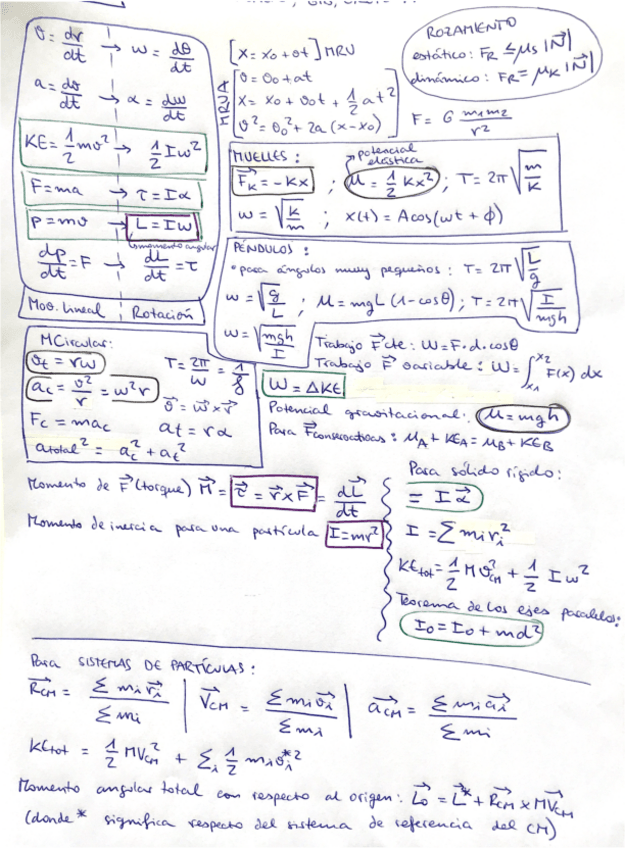 v = dr/dt → w = dθ/dt
a = dv/dt → α = dw/dt
KE = 1/2 mv² → 1/2 Iw²
F = ma → τ = Iα
p = mv → L = Iw
↳ momento angular
dp/dt = F → dL/dt = τ
Mov. lineal | Rotación
[x = x₀ + vt] MRU
MRUA
v = v₀ + at
x = x₀ + v₀t + 1/2 at²
v² = v₀² + 2a(x - x₀)
ROZAMIENTO
estático: F_R ≤ μs |N|
dinámico: F_R = μ_K |N|
F = G m₁m₂/r²
MUELLES:
potencial elástica
F_K = -Kx ; μ = 1/2 Kx² ; T = 2π √(m/K)
w = √(k/m) ; x(t) = A cos(wt + ϕ)
PÉNDULOS:
• para ángulos muy pequeños: T = 2π √(L/g)
w = √(g/L) ; μ = mgL (1 - cosθ) ; T = 2π √(I/mgh)
w = √(mgh/I)
MCircular:
v_t = rw
T = 2π/w = 1/f
a_c = v²/r = w²r
v = w × r
F_c = ma_c
a_t = rα
a_total² = a_c² + a_t²
Trabajo F cte: W = F·d·cosθ
Trabajo F variable: W = ∫_{x₁}^{x₂} F(x) dx
W = ΔKE
Potencial gravitacional: μ = mgh
Para F conservativas: μ_A + KE_A = μ_B + KE_B
Momento de F (torque) M = τ = r × F = dL/dt
Momento de inercia para una partícula I = mr²
Para sólido rígido:
= Iα
I = Σ mᵢrᵢ²
KE_tot = 1/2 M v_CM² + 1/2 Iw²
Teorema de los ejes paralelos:
I₀ = I₀ + md²
Para SISTEMAS DE PARTÍCULAS:
R_CM = Σ mᵢrᵢ / Σ mᵢ | V_CM = Σ mᵢvᵢ / Σ mᵢ | a_CM = Σ mᵢaᵢ / Σ mᵢ
KE_tot = 1/2 MV_CM² + Σᵢ 1/2 mᵢvᵢ*²
Momento angular total con respecto al origen: L₀ = L* + R_CM × MV_CM
(donde * significa respecto del sistema de referencia del CM)